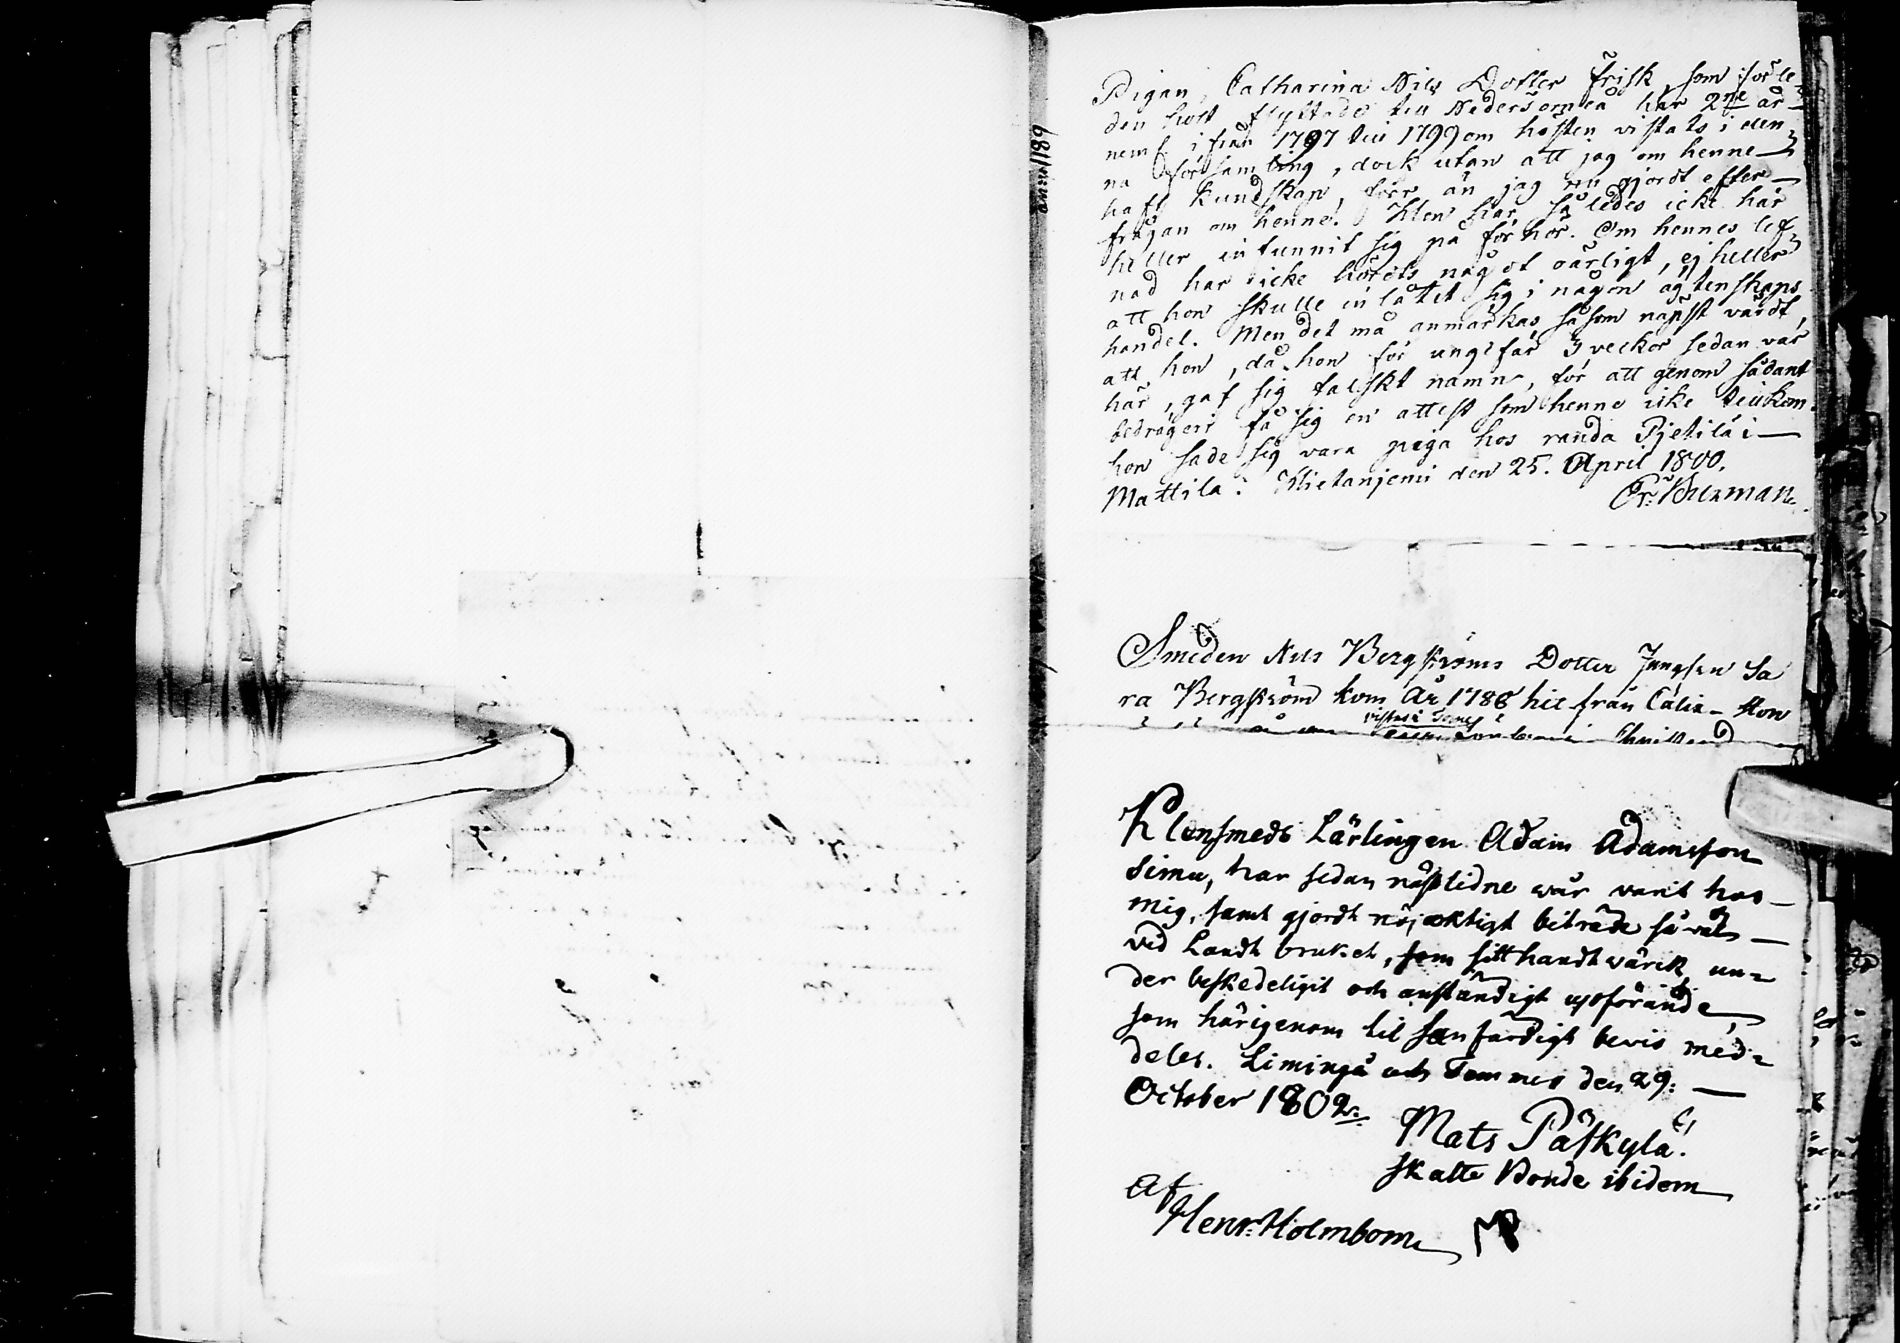 Pigan, Catharina Nils Dotter Frisk, som förle-
den höst flyttade till Nedertorneå har 2ne år
neml. ifrån 1797 till 1799 om hösten vistats i den-
na Församling, dock utan att jag om henne
haft kundskap, förr än jag nu gjordt efter-
frågan om henne. Hon har således icke här
heller infunnit sig på förhör. Om hennes lef-
nad har icke hördts något oärligt, ej heller
att hon skulle inlåtit sig i någon ägtenskaps
handel. Men det må anmärkas såsom näpst värdt,
att hon, då hon för ungefär 3 veckor sedan var
här, gaf sig falskt namn, för att genom sådant
bedrägeri få sig en attest som henne icke tillkom.
hon sade sig vara piga hos randa Pjetilä i
Mattila. Hietaniemi den 25. April 1800.
Smeden Nils Bergströms Dotter Jungfrun Sa
ra Bergström kom År 1788 hit från Calix - Hon
Klensmeds Lärlingen Adam Adamsson
Simu, har sedan nästlidne wår varit hos
mig, samt gjordt nöjaktigt biträde så väl
vid Landtbruket, som sitt handtwärck, un-
der beskedeligit och anständigt upförande,
som härigenom til sanfärdigt bevis med-
deles. Limingå och Temmes den 29:
October 1802.
Mats Päfkylä.
Skatte Bonde ibidem
Af
Henr: Holmbom MP